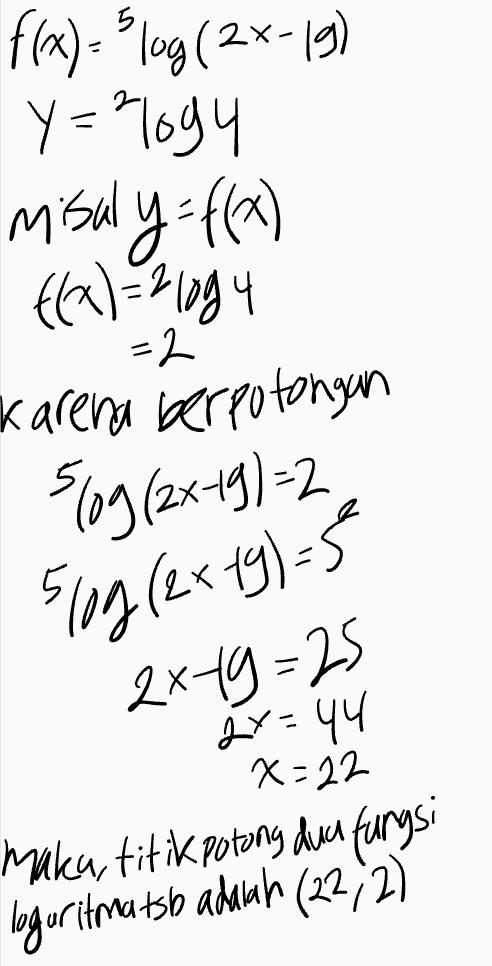 f(x) = ⁵log(2x-19)
y = ²log 4
misal y = f(x)
f(x) = ²log 4
= 2
karena berpotongan
⁵log(2x-19) = 2
⁵log(2x-19) = 5²
2x-19 = 25
2x = 44
x = 22
maka, titik potong dua fungsi
logaritma tsb adalah (22, 2)